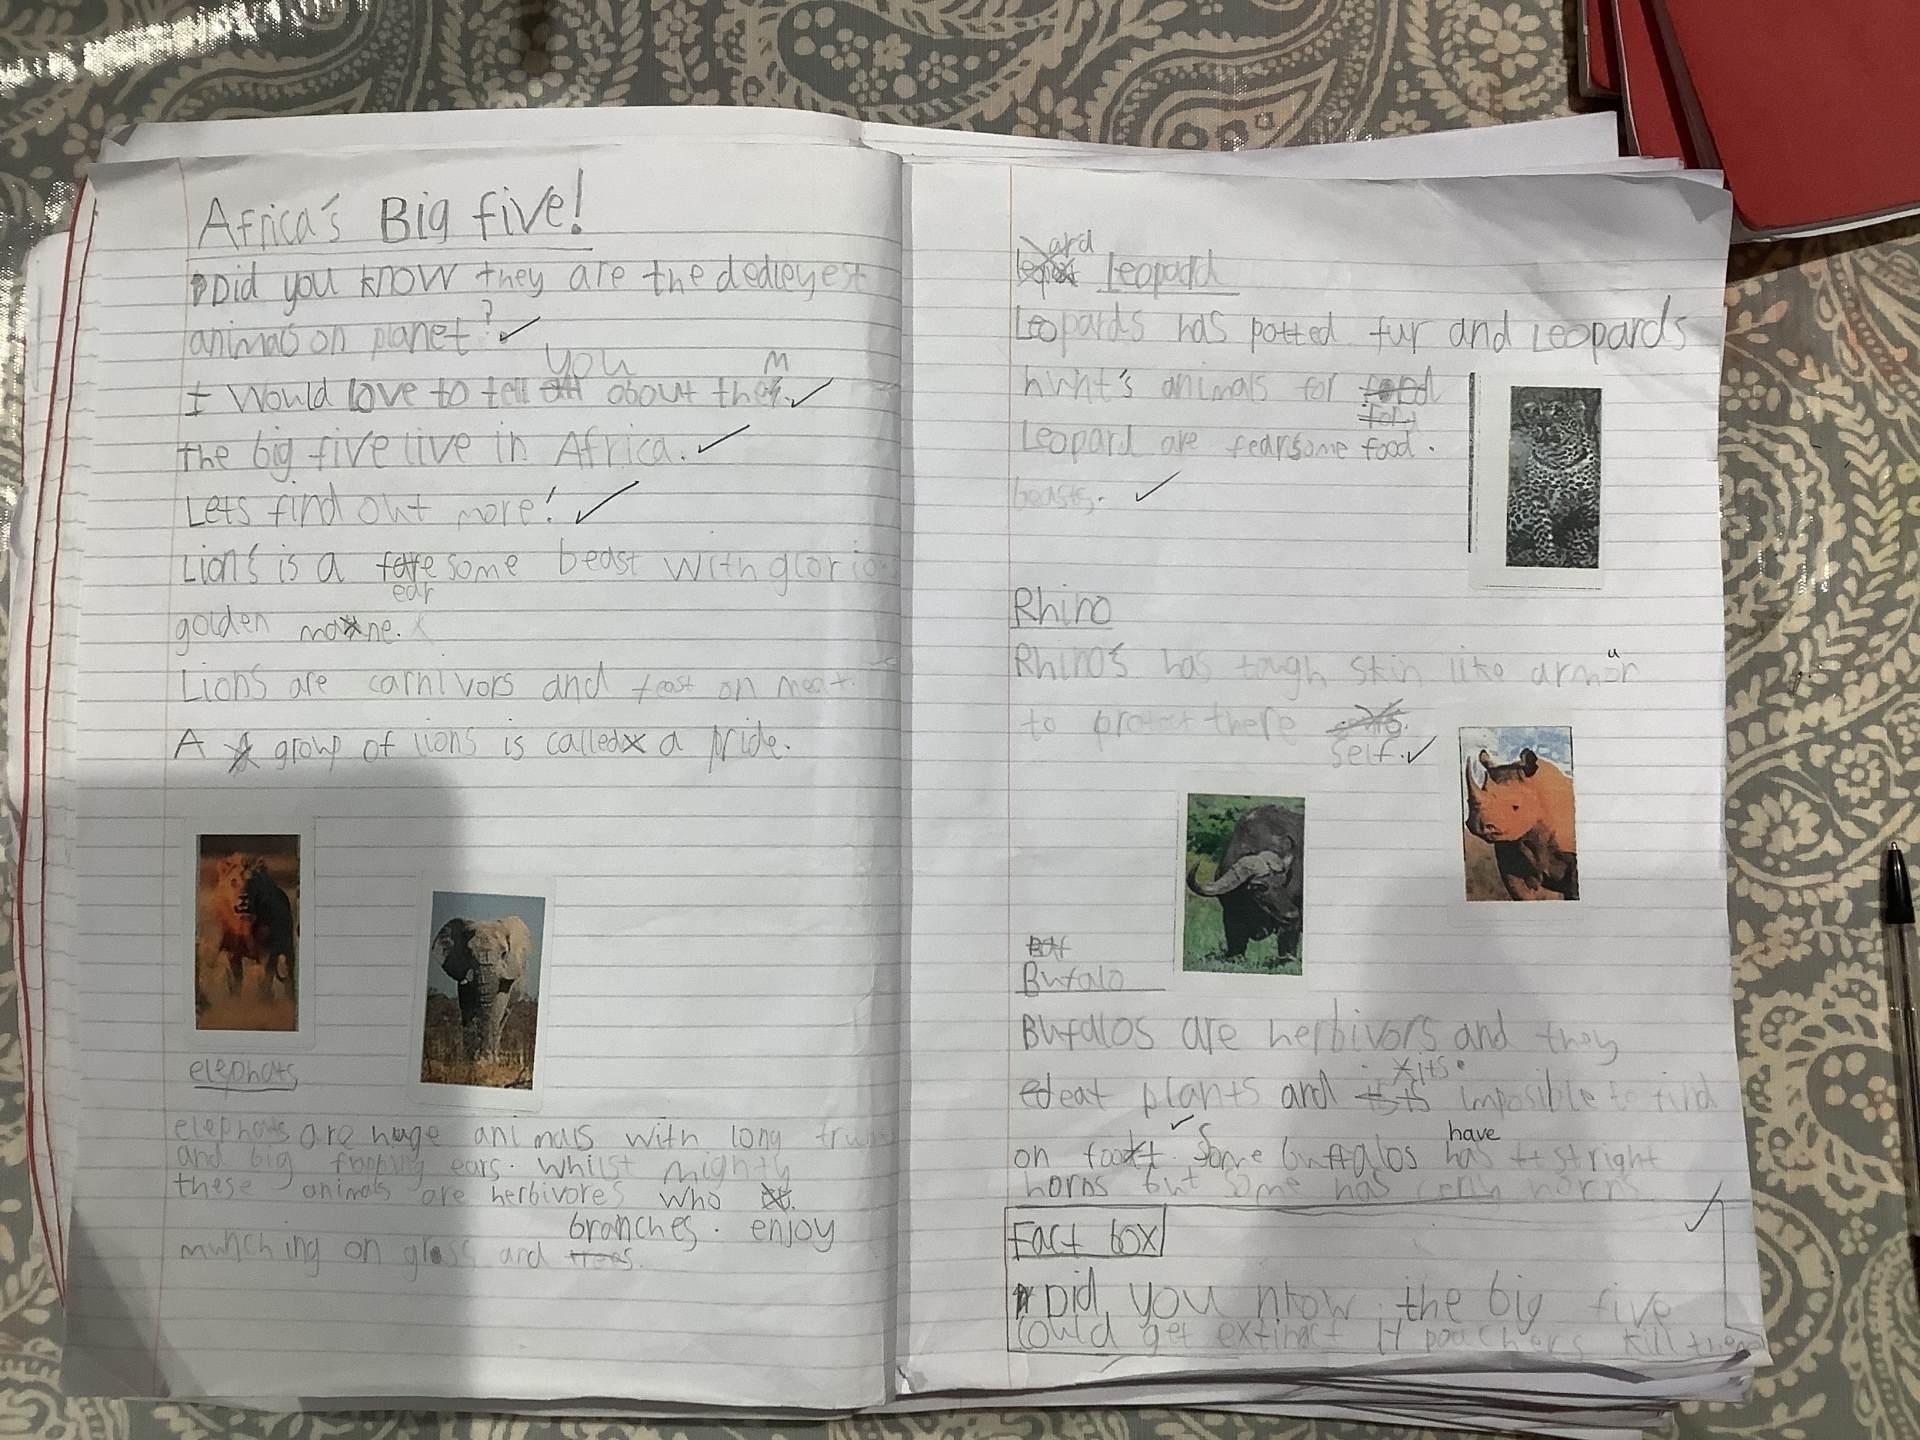 Africa's Big five!
Did you know they are the dedleyest
animals on planet?
you m
I Would love to tell about the
the big five live in Africa.
Lets find out more!
Lion's is a fare some beast with glorio
ear
golden mane.
Lions are carnivors and feast on meat.
A group of lions is called a pride.
elephats
elephats are huge animals with long trun
and big flapping ears. whilst mighty
these animals are herbivores who
branches. enjoy
munching on grass and trees.
ard
Leopard
Leopards has potted fur and Leopards
hunt's animals for food
Leopard are fearsome food.
beasts.
Rhino
Rhino's has tough skin like armur
to protect there
self.
Bufalo
Bufalos are herbivors and they
its
eat plants and imposible to find
have
on food. Some buffalos has stright
horns but some has cerly horns
Fact box
Did you know the big five
could get extinct if poachers kill them